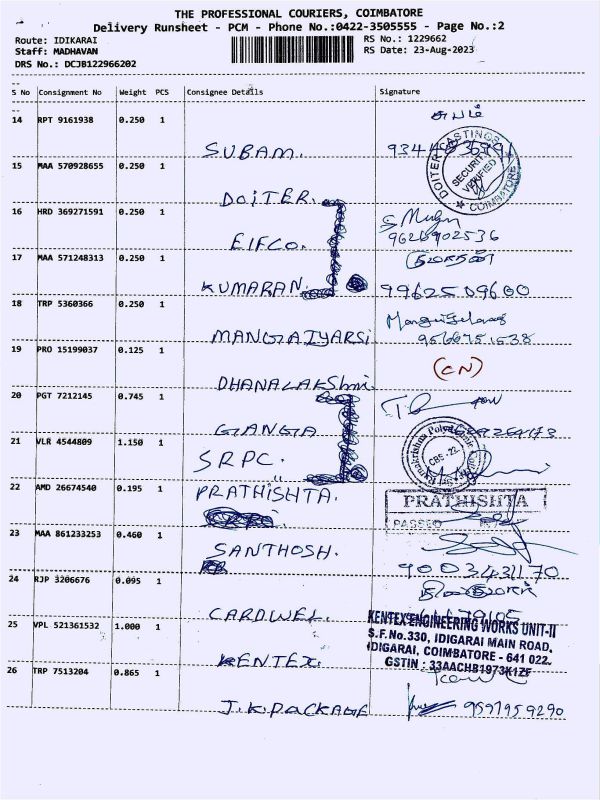 THE PROFESSIONAL COURIERS, COIMBATORE
Delivery Runsheet - PCM - Phone No.:0422-3505555 - Page No.:2
Route: IDIKARAI
RS No.: 1229662
Staff: MADHAVAN
RS Date: 23-Aug-2023
DRS No.: DCJB122966202
S No Consignment No Weight PCS Consignee Details Signature
14 RPT 9161938 0.250 1
சுபம்
SUBAM.
DOITER CASTINGS
SECURITY
VERIFIED
COIMBATORE
15 MAA 570928655 0.250 1
DOITER.
16 HRD 369271591 0.250 1
EIFCO.
9626902536
17 MAA 571248313 0.250 1
KUMARAN.
9962509600
18 TRP 5360366 0.250 1
MANGAIYARSI
9566751538
19 PRO 15199037 0.125 1
(CN)
DHANALAKShmi.
20 PGT 7212145 0.745 1
GANGA
21 VLR 4544809 1.150 1
SRPC.
CBS - 22
22 AMD 26674540 0.195 1
PRATHISHTA.
PRATHISHTA
PASSED
23 MAA 861233253 0.460 1
SANTHOSH.
9003431170
24 RJP 3206676 0.095 1
CARDWEL.
25 VPL 521361532 1.000 1
KENTEX.
KENTEX ENGINEERING WORKS UNIT-II
S.F.No.330, IDIGARAI MAIN ROAD,
IDIGARAI, COIMBATORE - 641 022.
GSTIN : 33AACHB1973K1ZF
26 TRP 7513204 0.865 1
J.K.PACKAGE
9597959290